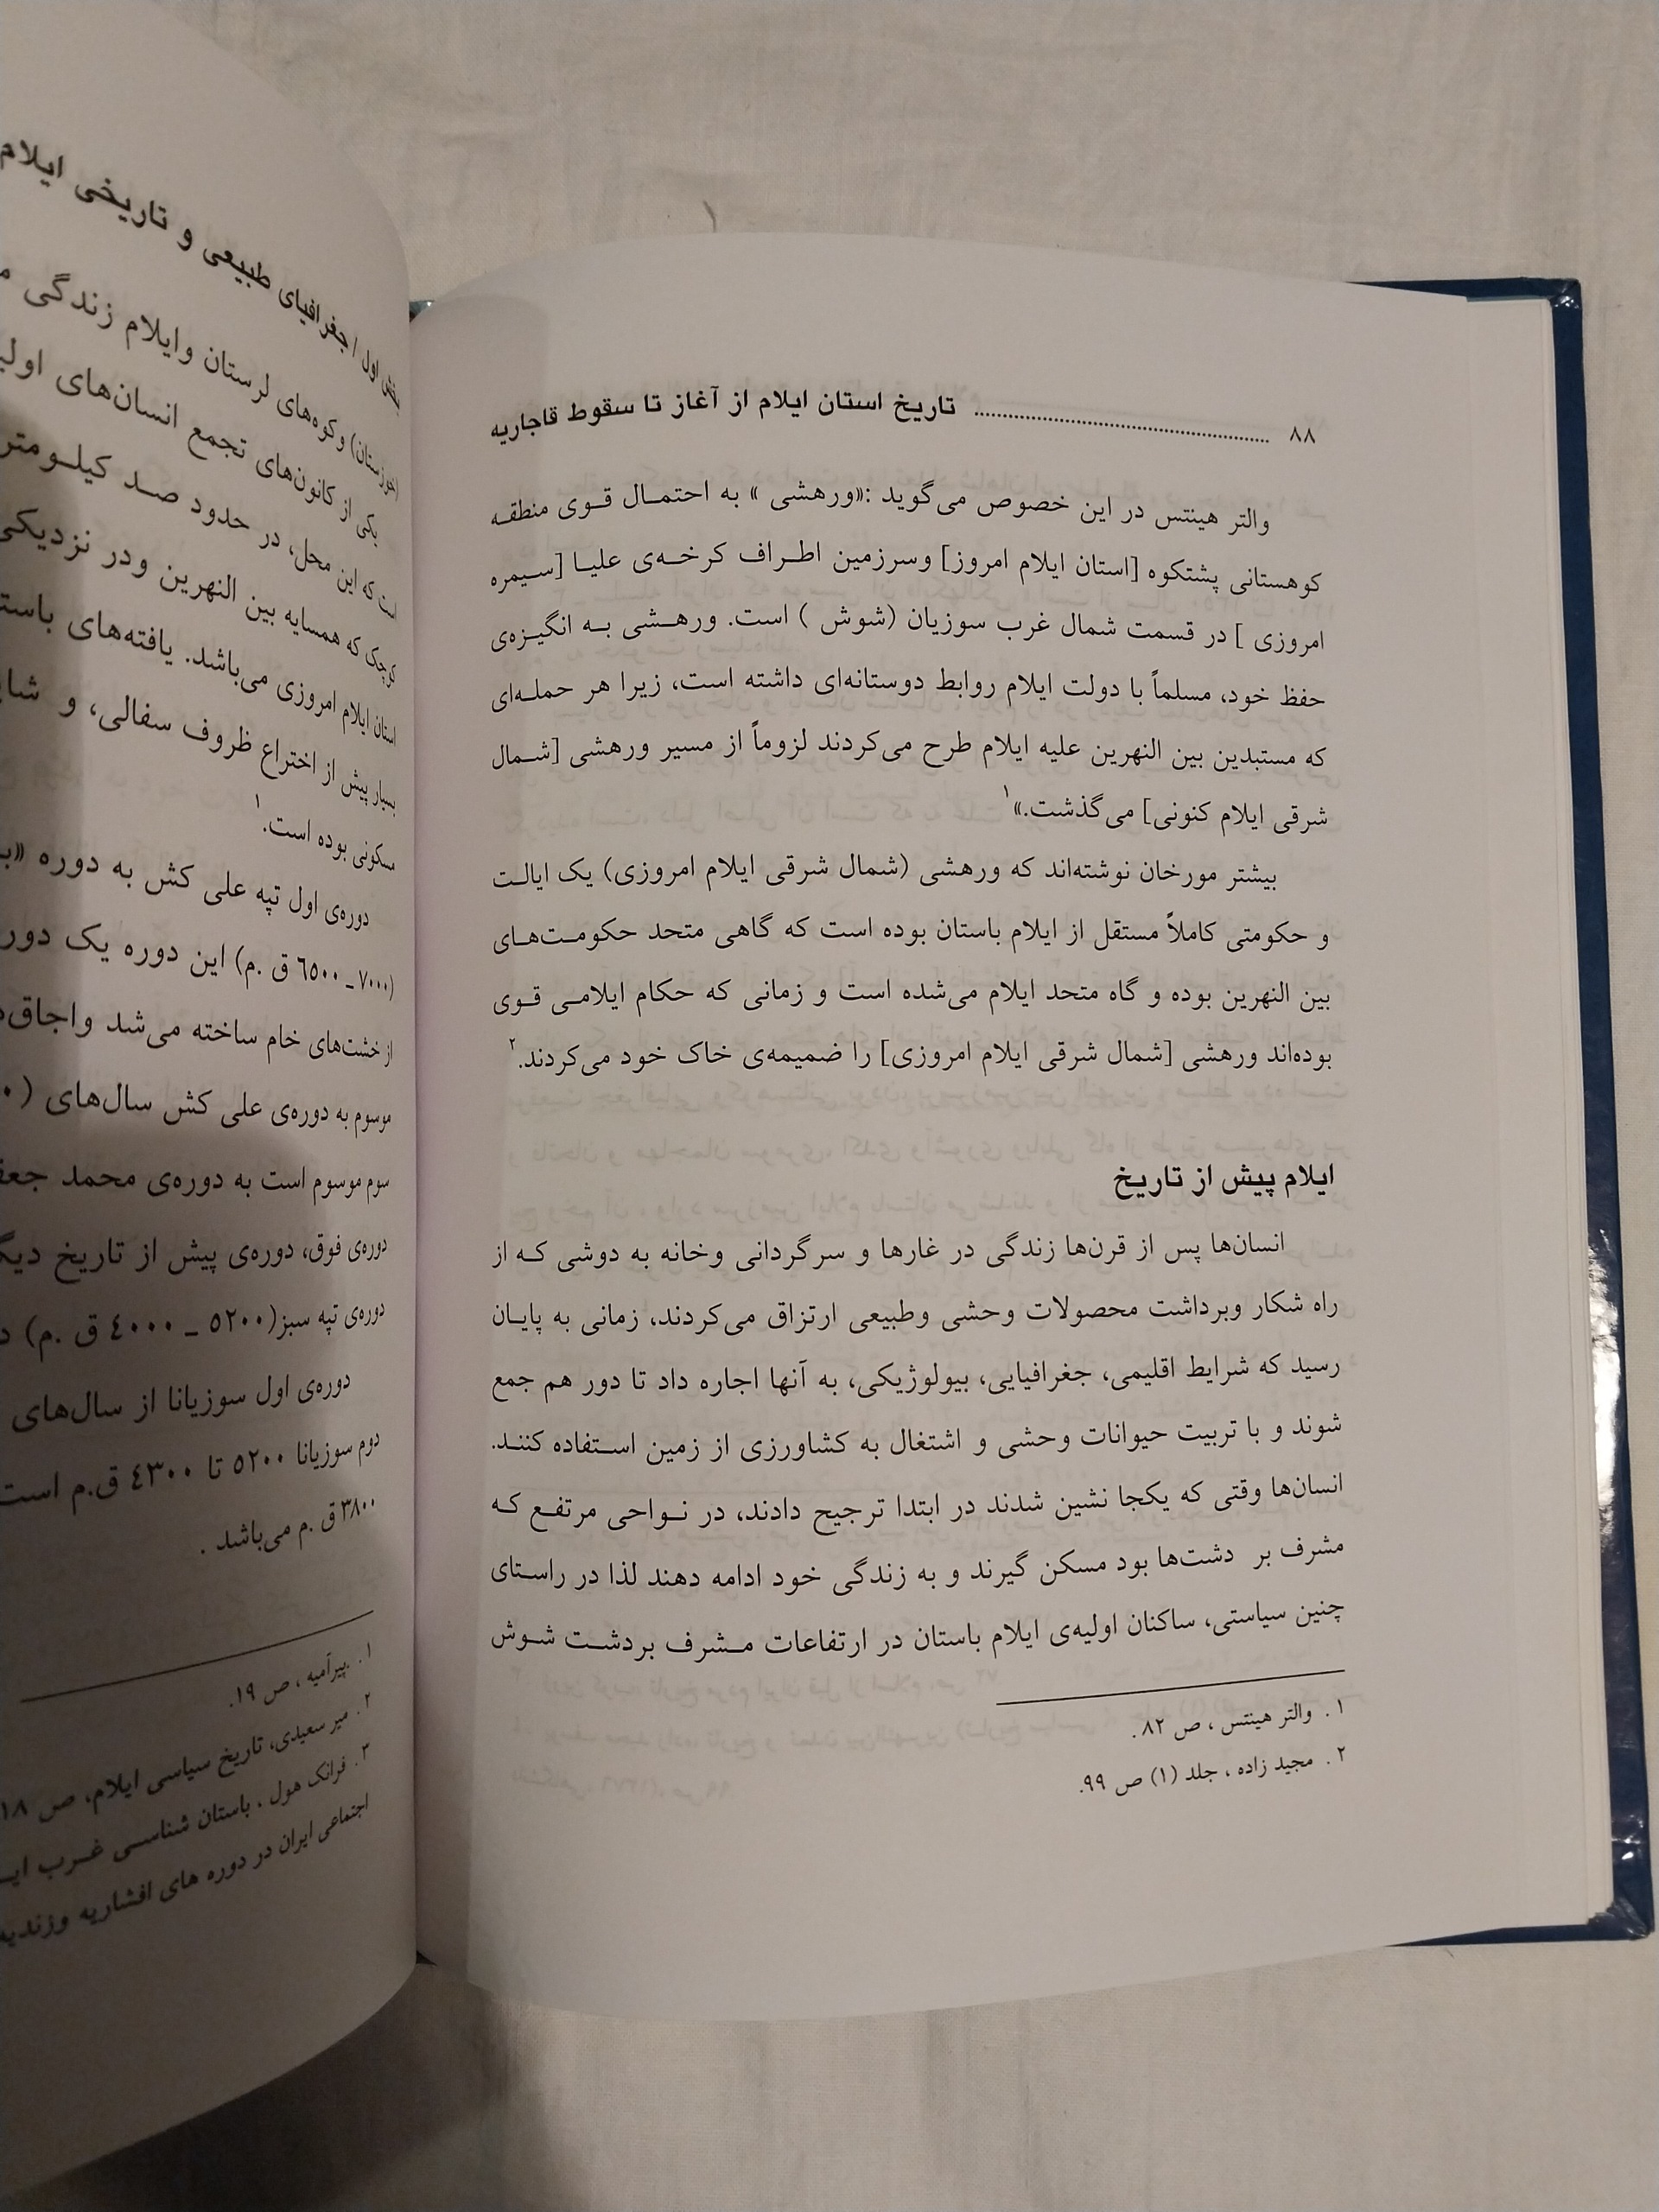 ۸۸ ........ تاریخ استان ایلام از آغاز تا سقوط قاجاریه
والتر هینتس در این خصوص می‌گوید :«ورهشی » به احتمال قوی منطقه
کوهستانی پشتکوه [استان ایلام امروز] وسرزمین اطراف کرخه‌ی علیا [سیمره
امروزی ] در قسمت شمال غرب سوزیان (شوش ) است. ورهشی به انگیزه‌ی
حفظ خود، مسلماً با دولت ایلام روابط دوستانه‌ای داشته است، زیرا هر حمله‌ای
که مستبدین بین النهرین علیه ایلام طرح می‌کردند لزوماً از مسیر ورهشی [شمال
شرقی ایلام کنونی] می‌گذشت.»۱
بیشتر مورخان نوشته‌اند که ورهشی (شمال شرقی ایلام امروزی) یک ایالت
و حکومتی کاملاً مستقل از ایلام باستان بوده است که گاهی متحد حکومت‌های
بین النهرین بوده و گاه متحد ایلام می‌شده است و زمانی که حکام ایلامی قوی
بوده‌اند ورهشی [شمال شرقی ایلام امروزی] را ضمیمه‌ی خاک خود می‌کردند.۲
ایلام پیش از تاریخ
انسان‌ها پس از قرن‌ها زندگی در غارها و سرگردانی وخانه به دوشی که از
راه شکار وبرداشت محصولات وحشی وطبیعی ارتزاق می‌کردند، زمانی به پایان
رسید که شرایط اقلیمی، جغرافیایی، بیولوژیکی، به آنها اجاره داد تا دور هم جمع
شوند و با تربیت حیوانات وحشی و اشتغال به کشاورزی از زمین استفاده کنند.
انسان‌ها وقتی که یکجا نشین شدند در ابتدا ترجیح دادند، در نواحی مرتفع که
مشرف بر دشت‌ها بود مسکن گیرند و به زندگی خود ادامه دهند لذا در راستای
چنین سیاستی، ساکنان اولیه‌ی ایلام باستان در ارتفاعات مشرف بردشت شوش
۱ . والتر هینتس ، ص ۸۲.
۲ . مجید زاده ، جلد (۱) ص ۹۹.
بخش اول / جغرافیای طبیعی و تاریخی ایلام
(خوزستان) وکوه‌های لرستان وایلام زندگی
یکی از کانون‌های تجمع انسان‌های
است که این محل، در حدود صد کیلومتر
کوچک که همسایه بین النهرین ودر نزدیکی
استان ایلام امروزی می‌باشد. یافته‌های
بسیار پیش از اختراع ظروف سفالی، و
مسکونی بوده است.۱
دوره‌ی اول تپه علی کش به دوره
(۷۰۰۰ ـ ٦٥۰۰ ق .م) این دوره یک
از خشت‌های خام ساخته می‌شد
موسوم به دوره‌ی علی کش سال‌های (
سوم موسوم است به دوره‌ی محمد
دوره‌ی فوق، دوره‌ی پیش از تاریخ
دوره‌ی تپه سبز(٥۲۰۰ ـ ٤۰۰۰ ق .م)
دوره‌ی اول سوزیانا از سال‌های
دوم سوزیانا ٥۲۰۰ تا ٤۳۰۰ ق.م است
۳۸۰۰ق .م می‌باشد .
۱ . پیرآمیه ، ص ۱۹.
۲ . میر سعیدی، تاریخ سیاسی ایلام، ص ۱۸
۳ . فرانک هول ، باستان شناسی غرب
اجتماعی ایران در دوره های افشاریه وزندیه